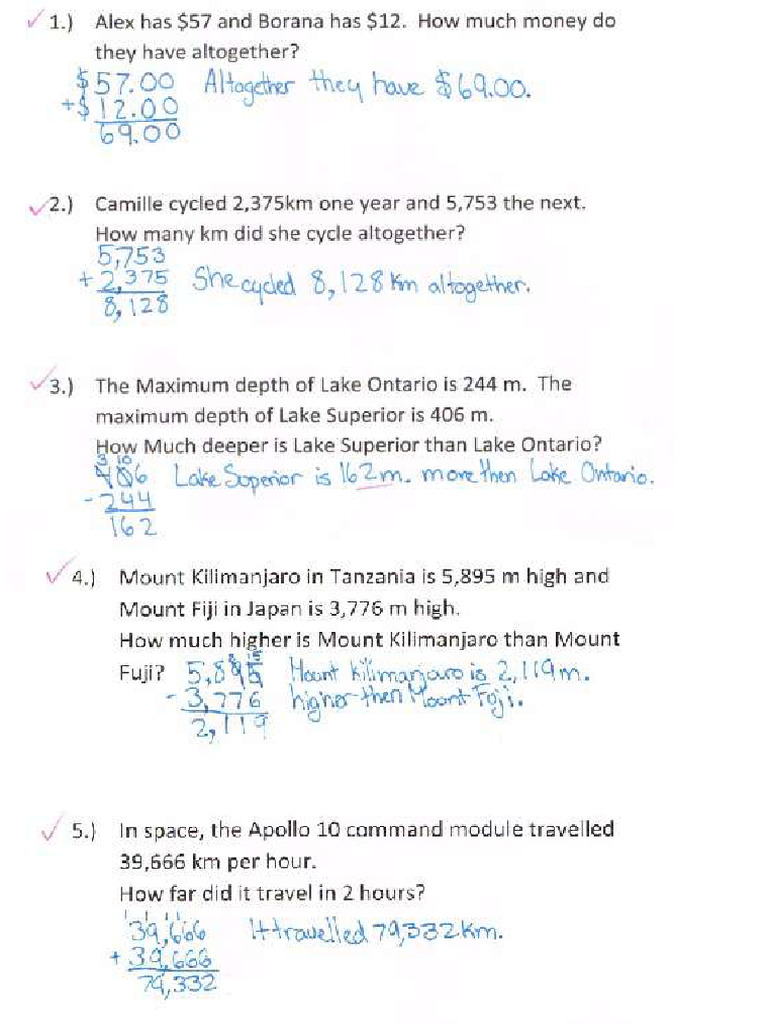 1.) Alex has $57 and Borana has $12. How much money do
they have altogether?
$57.00 Altogether they have $69.00.
+$12.00
69.00
2.) Camille cycled 2,375km one year and 5,753 the next.
How many km did she cycle altogether?
5,753
+2,375 She cycled 8,128 km altogether.
8,128
3.) The Maximum depth of Lake Ontario is 244 m. The
maximum depth of Lake Superior is 406 m.
How Much deeper is Lake Superior than Lake Ontario?
3 10
406 Lake Superior is 162m. more then Lake Ontario.
-244
162
4.) Mount Kilimanjaro in Tanzania is 5,895 m high and
Mount Fiji in Japan is 3,776 m high.
How much higher is Mount Kilimanjaro than Mount
8 15
Fuji? 5,895 Mount Kilimanjaro is 2,119m.
-3,776 higher then Mount Foji.
2,119
5.) In space, the Apollo 10 command module travelled
39,666 km per hour.
How far did it travel in 2 hours?
1 1 1 1
39,666 It travelled 79,332km.
+39,666
79,332